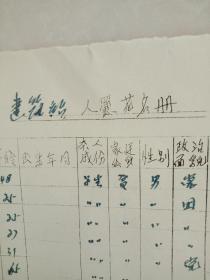 建筑 人员花名册
龄 出生年月 本人成份 家庭出身 性别 政治面
48 学生 贫 男 党
25 〃 〃 〃 团
25 〃 〃 〃 〃
27 〃 〃 〃 〃
31 〃 〃 〃 〃
45 〃 〃 〃 党